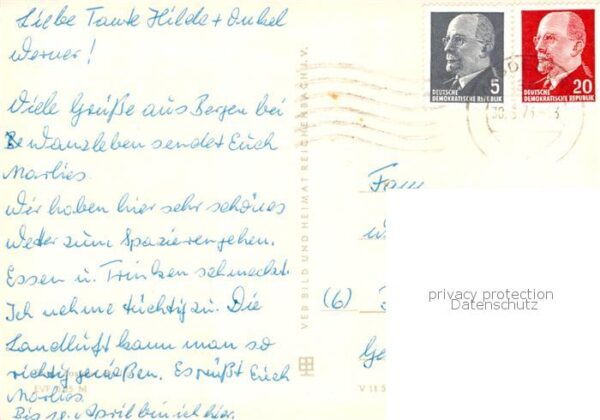 Liebe Tante Hilde + Onkel
Werner!
Viele Grüße aus Bergen bei
Wanzleben sendet Euch
Marlies.
Wir haben hier sehr schönes
Wetter zum Spazierengehen.
Essen u. Trinken schmeckt.
Ich nehme tüchtig zu. Die
Landluft kann man so
richtig genießen. Es grüßt Euch
Marlies.
Bis 18. April bin ich hier.
VEB BILD UND HEIMAT REICHENBACH I. V.
5
DEUTSCHE
DEMOKRATISCHE REPUBLIK
20
DEUTSCHE
DEMOKRATISCHE REPUBLIK
Fam
(6)
V 11 5
privacy protection
Datenschutz